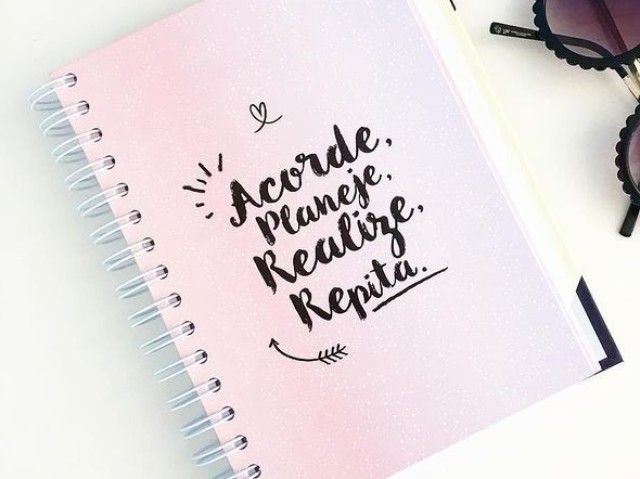 Acorde,
Planeje,
Realize,
Repita.